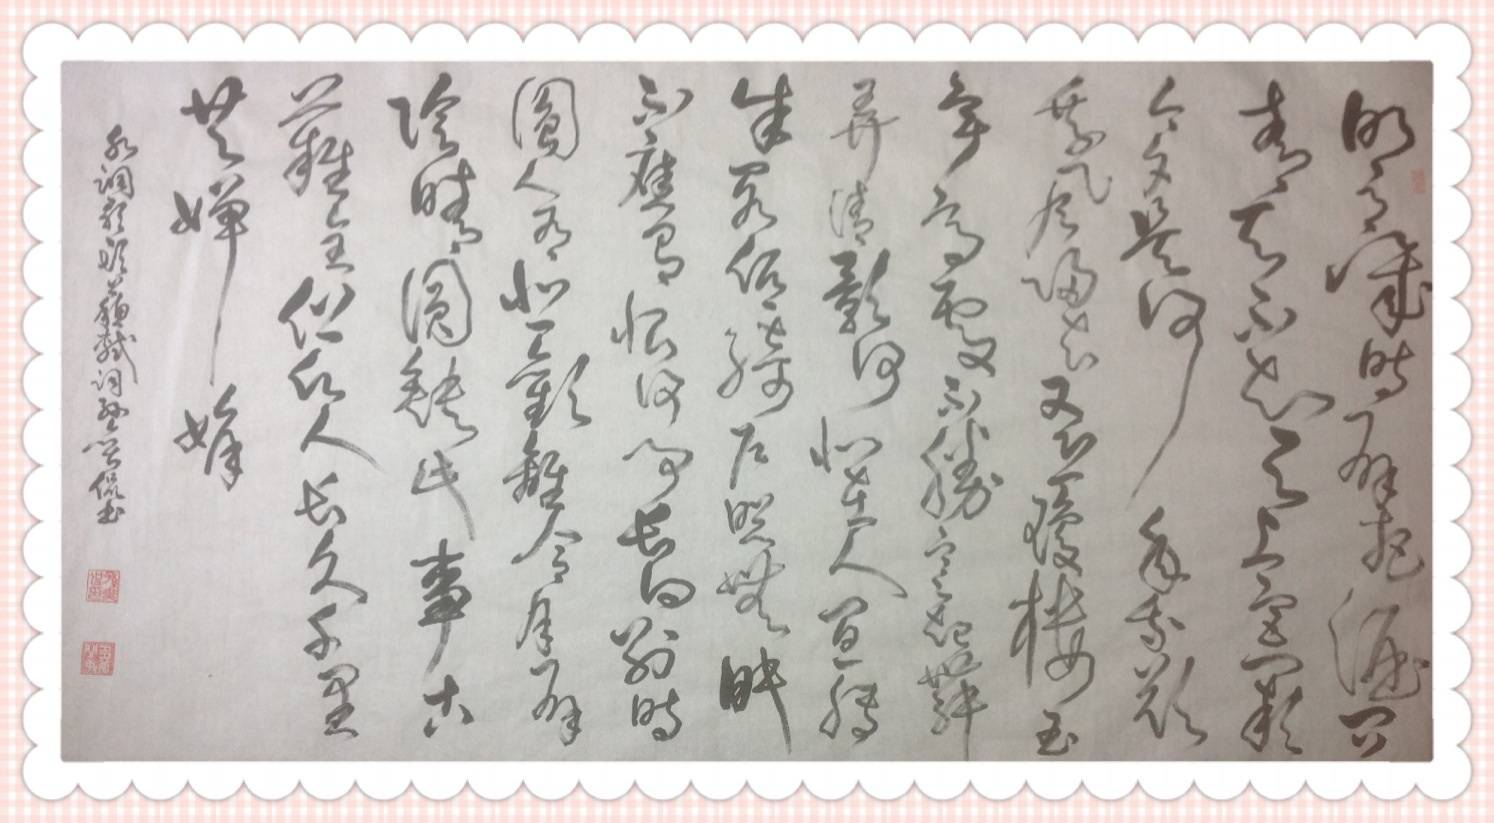 明月幾時有把酒问
青天不知天上宫闕
今夕是何年我欲
乘風歸去又恐瓊樓玉
宇高處不勝寒起舞
弄清影何似在人间轉
朱閣低綺户照無眠
不應有恨何事長向别時
圓人有悲歡離合月有
陰晴圓缺此事古
難全但願人長久千里
共嬋娟
水調歌頭蘇軾詞 侃书